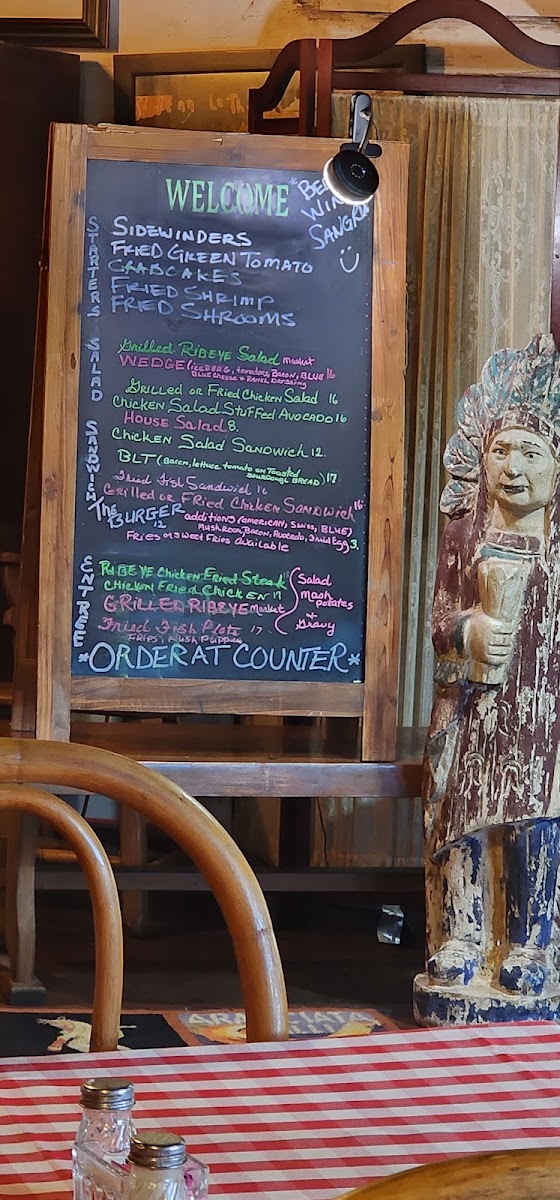 WELCOME
*BE
WIN
SANGRI
STARTERS
SIDEWINDERS
FRIED GREEN TOMATO
CRABCAKES
FRIED SHRIMP
FRIED SHROOMS
SALAD
Grilled RIBEYE Salad market
WEDGE (ICEBERG, tomatoes, Bacon, BLUE 16
BLUE Cheese & Ranch Dressing
GRILLED or FRIED Chicken Salad 16
Chicken Salad Stuffed AVOCADO 16
HOUSE Salad 8.
SANDWICH
Chicken Salad Sandwich 12.
BLT (Bacon, lettuce tomato on Toasted SOURDOUGH BREAD) 17
Fried Fish Sandwich
Grilled or Fried Chicken Sandwich 16
The BURGER 12
additions (AMERICAN, SWISS, BLUE)
Mushroom, Bacon, Avocado, Fried Egg 3.
FRIES or Sweet Fries Available
ENTREE
RIBEYE Chicken Fried Steak
CHICKEN FRIED CHICKEN 17
GRILLED RIBEYE Market
Salad
Mash potatoes
& Gravy
Fried Fish Plate 17
FRIES, HUSH PUPPIES
*ORDER AT COUNTER*